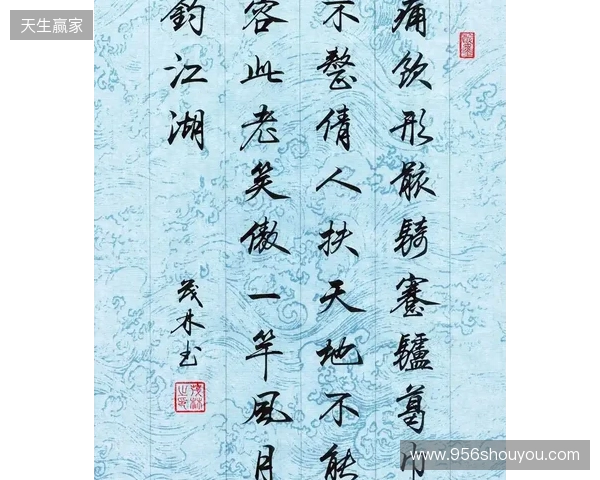 天生赢家
痛飲形骸騎蹇驢葛巾
不整倩人扶天地不能
容此老笑傲一竿風月
釣江湖
茂林书
www.956shouyou.com